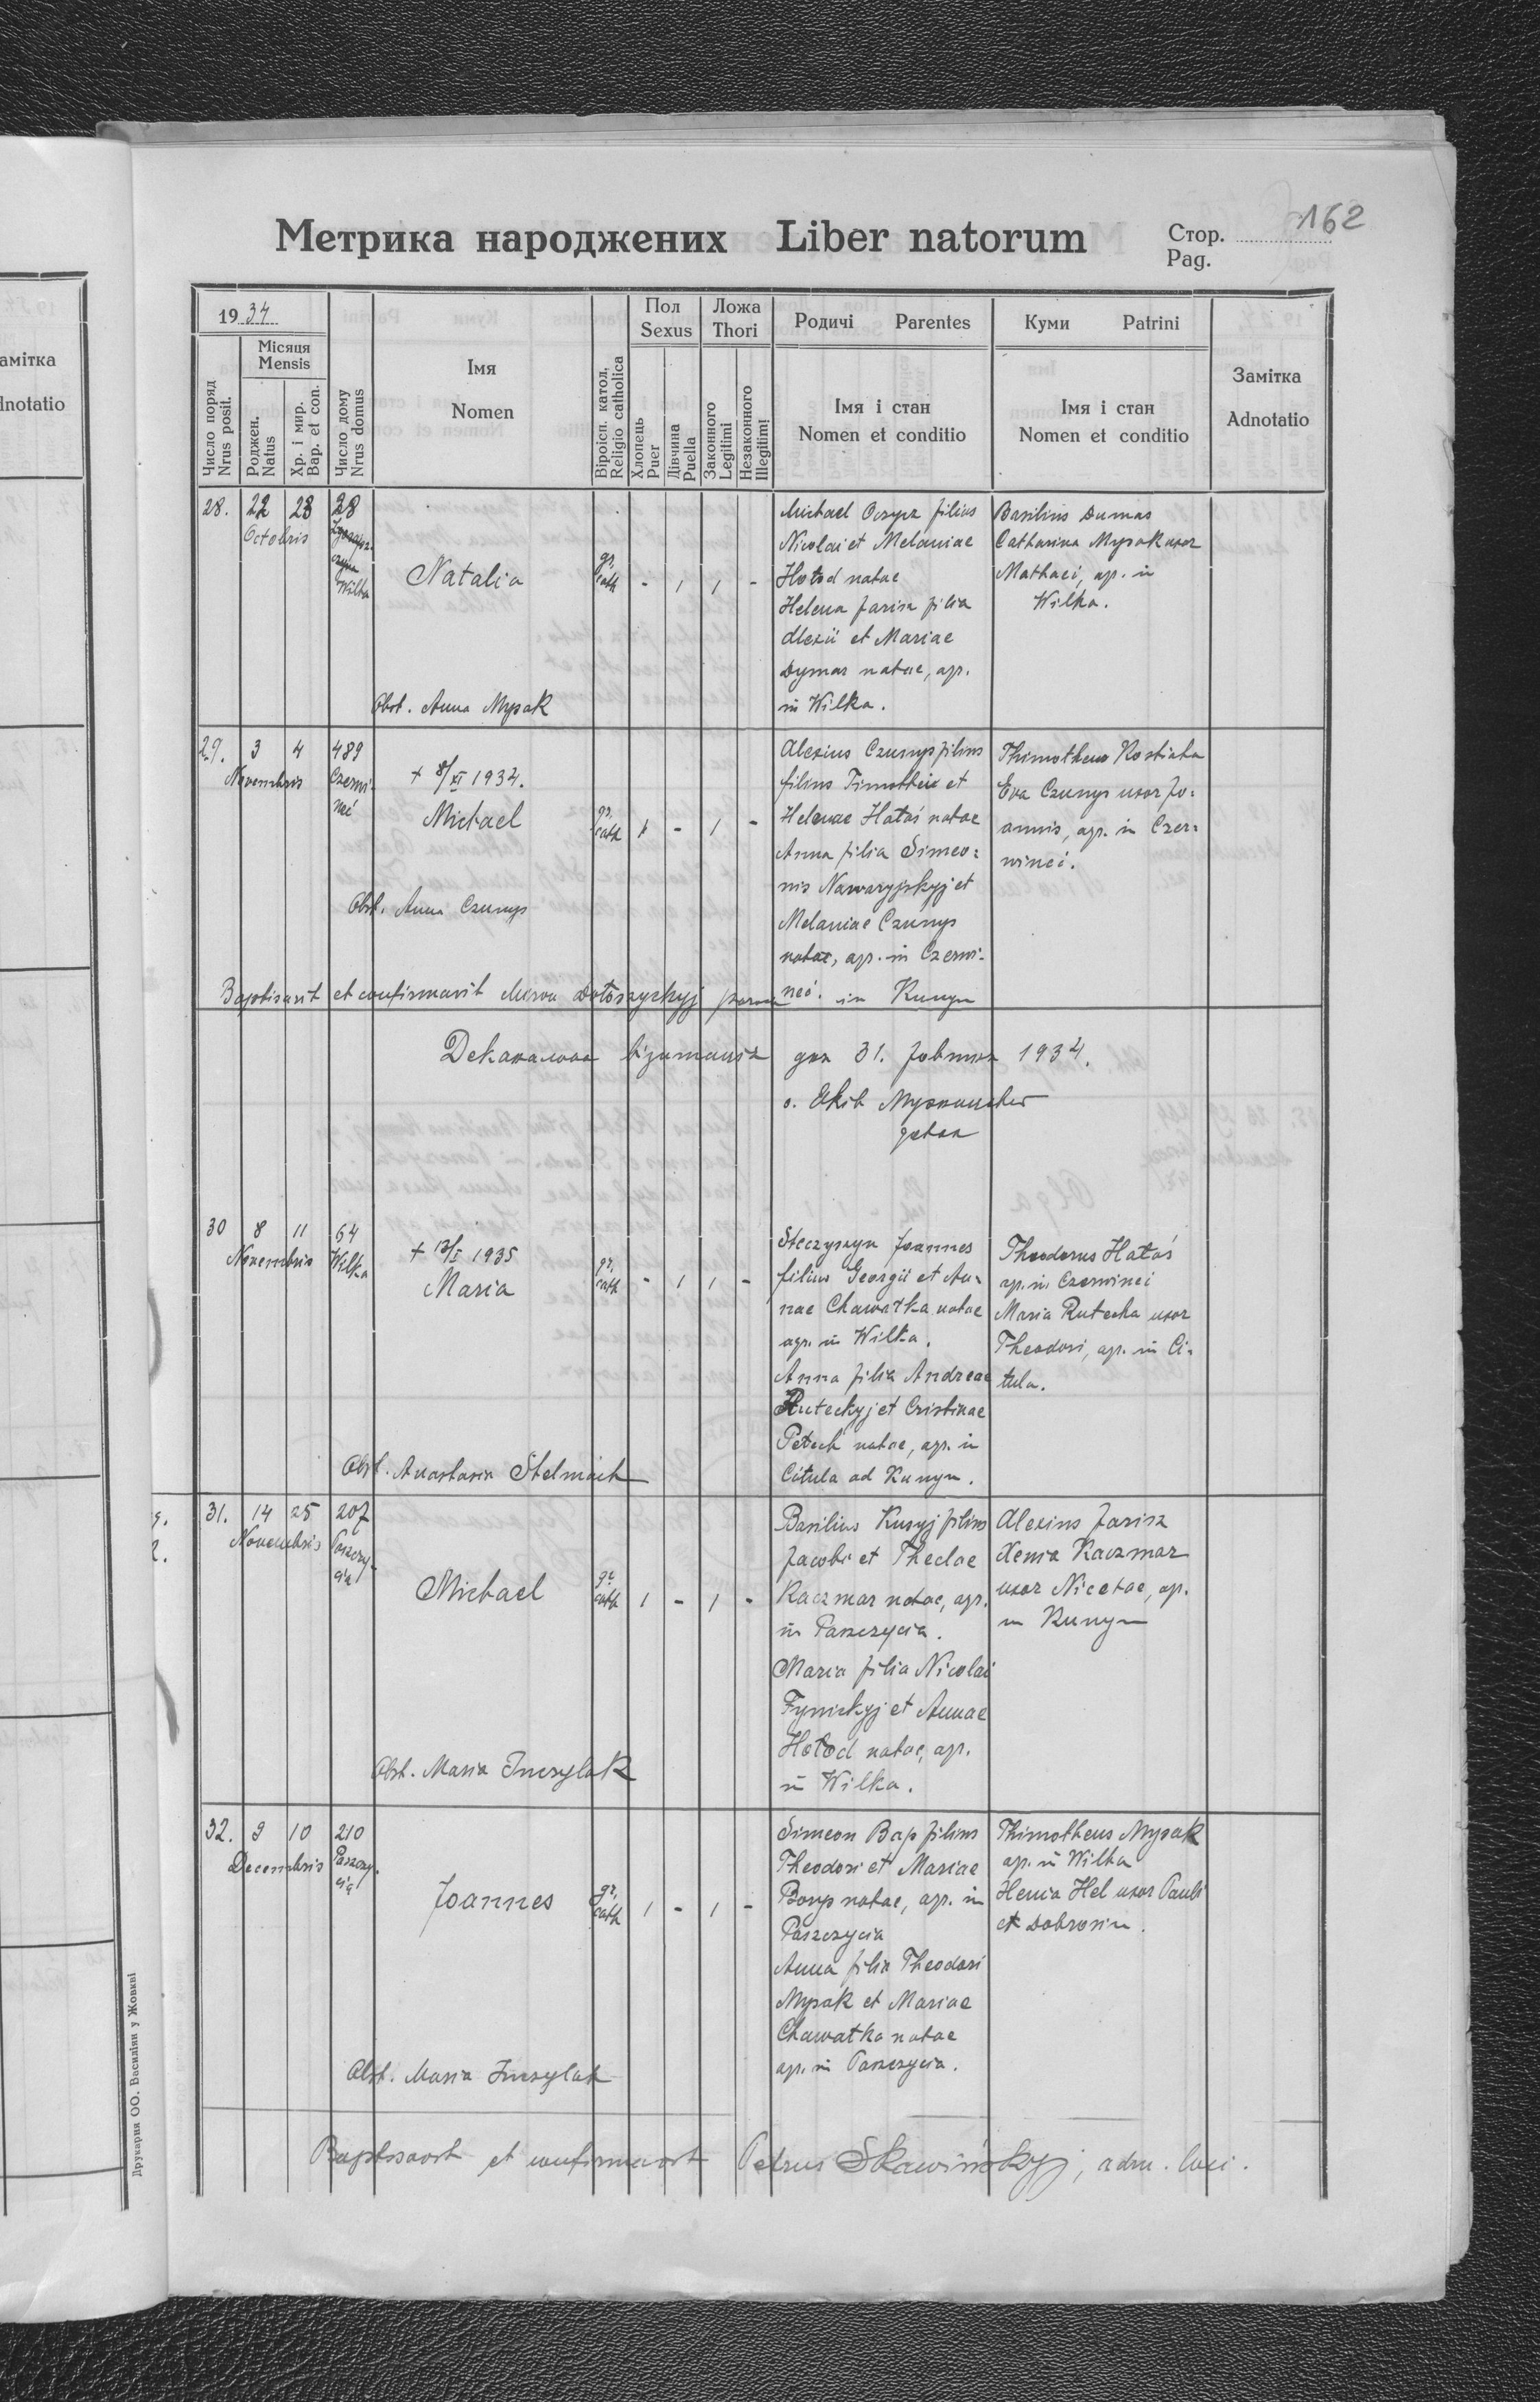 162
Метрика народжених Liber natorum Стор.
Pag.
19 34
Число поряд
Nrus posit.
Місяця
Mensis
Роджен.
Natus
Хр. і мир.
Bap. et con.
Число дому
Nrus domus
Імя
Nomen
Віроісп. катол.
Religio catholica
Пол
Sexus
Хлопець
Puer
Дівчина
Puella
Ложа
Thori
Законного
Legitimi
Незаконного
Illegitimi
Родичі Parentes
Імя і стан
Nomen et conditio
Куми Patrini
Імя і стан
Nomen et conditio
Замітка
Adnotatio
амітка
dnotatio
28. 22 23 28
Octobris
Wilka
Natalia
gr.
cath - 1 1 -
Michael filius
Nicolai et Melaniae
Hołod natae
Helena Jarisz filia
Alexii et Mariae
Dymar natae, agr.
in Wilka.
Basilius Dumas
Catharina Mysak uxor
Mathaei, agr. in
Wilka.
Obst. Anna Mysak
29. 3 4 489
Novembris Czerwi-
neć
+ 8/XI 1934.
Michael
gr.
cath 1 - 1 -
Alexius Czunys filius
filius Timothei et
Helenae Hałaś natae
Anna filia Simeo=
nis Nawaryjskyj et
Melaniae Czunys
natae, agr. in Czerwi-
neć.
Thimotheus Kostiaha
Eva Czunys uxor Jo=
annis, agr. in Czer=
wineć.
Obst. Anna Czunys
Baptisavit et confirmavit Miron Dołoszyckyj in Kunyn
Деканальна візитація дня 31. Жовтня 1934.
о. Яків
декан
30 8 11 64
Novembris Wilka
+ 13/I 1935
Maria
gr.
cath - 1 1 -
Steczyszyn Joannes
filius Georgii et An-
nae Chawałka natae
agr. in Wilka.
Anna filia Andreae
Ruteckyj et Cristinae
Petech natae, agr. in
Citula ad Kunyn.
Theodorus Hałaś
agr. in Czerwineć
Maria Rutecka uxor
Theodori, agr. in Ci-
tula.
Obst. Anastasia Stelmach
31. 14 25 207
Novembris Paszczy-
cia
Michael
gr.
cath 1 - 1 -
Basilius Kusyj filius
Jacobi et Theclae
Kaczmar natae, agr.
in Paszczycia.
Maria filia Nicolai
Fynickyj et Annae
Hołod natae, agr.
in Wilka.
Alexius Jarisz
Xenia Kaczmar
uxor Nicetae, agr.
in Kunyn
Obst. Maria Inczylak
32. 9 10 210
Decembris Paszczy-
cia
Joannes
gr.
cath 1 - 1 -
Simeon Bap filius
Theodori et Mariae
Borys natae, agr. in
Paszczycia
Anna filia Theodori
Mysak et Mariae
Chawałka natae
agr. in Paszczycia.
Thimotheus Mysak
agr. in Wilka
Xenia Hel uxor Pauli
Dobrosin.
Obst. Maria Inczylak
Baptisavit et confirmavit Petrus Skawińskyj, adm. loci.
Друкарня ОО. Василіян у Жовкві